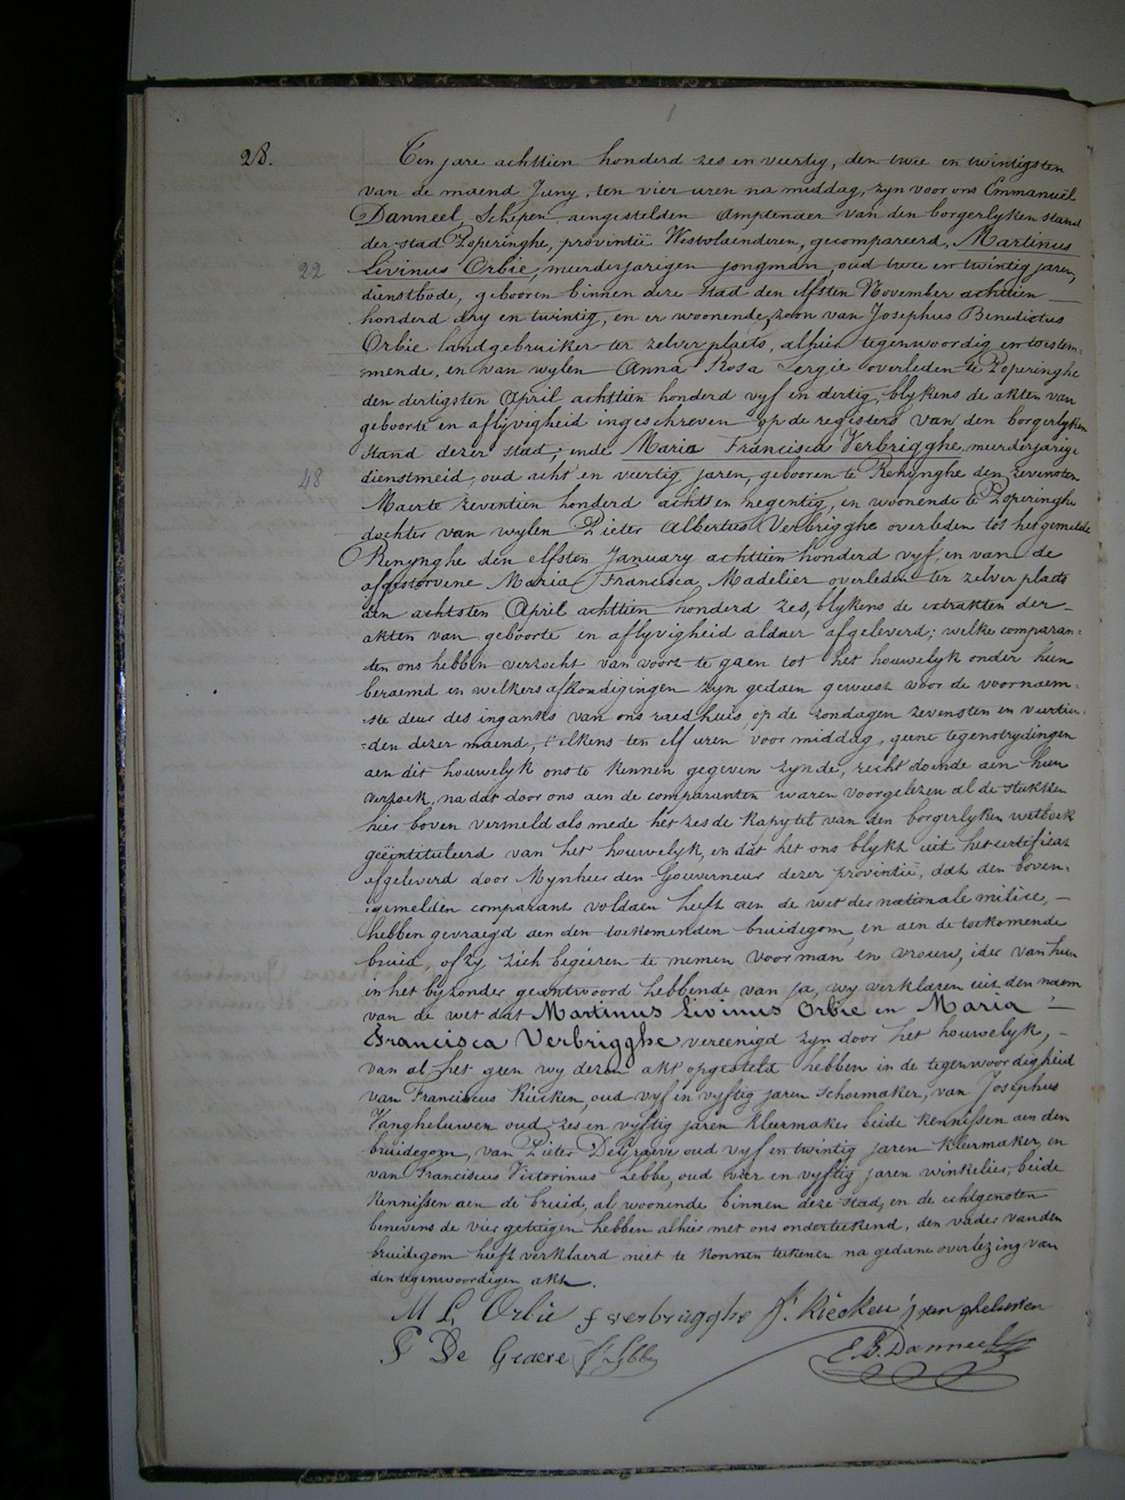 28.
Ten jare achttien honderd zes en veertig, den twee en twintigsten
van de maend Juny, ten vier uren na middag, zyn voor ons Emmanuël
Danneel, Schepen aengestelden Amptenaer van den borgerlyken stand
der stad Poperinghe, provintië Westvlaenderen, gecompareerd, Martinus
22
Livinus Orbie, meerderjarigen jongman, oud twee en twintig jaren,
dienstbode, gebooren binnen deze stad den elfsten November achttien
honderd dry en twintig, en er woonende, zoon van Josephus Benedictus
Orbie landgebruiker ter zelver plaets, alhier tegenwoordig en toestem=
=mende, en van wylen Anna Rosa Lergie overleden te Poperinghe
den dertigsten April achttien honderd vyf en dertig, blykens de akten van
geboorte en aflyvigheid ingeschreven op de registers van den borgerlyken
stand dezer stad; ende Maria Francisca Verbrigghe meerderjarige
48
dienstmeid, oud acht en veertig jaren, gebooren te Renynghe den zevensten
Maerte zeventien honderd acht en negentig, en woonende te Poperinghe
dochter van wylen Pieter Albertus Verbrigghe overleden tot het gemelde
Renynghe den elfsten January achttien honderd vyf, en van de
afgestorvene Maria Francisca Madelier overleden ter zelver plaets
den achtsten April achttien honderd zes, blykens de extrakten der
akten van geboorte en aflyvigheid aldaer afgeleverd; welke comparan=
ten ons hebben verzocht van voort te gaen tot het houwelyk onder hun
beraemd en welkers afkondigingen zyn gedaen geweest voor de voornaem=
=ste deur des ingangs van ons raedhuis, op de zondagen zevensten en veertien=
=den dezer maend, telkens ten elf uren voor middag, geene tegenstrydingen
aen dit houwelyk ons te kennen gegeven zynde, recht doende aen hun
verzoek, na dat door ons aen de comparanten waren voorgelezen al de stukken
hier boven vermeld als mede het zesde kapytel van den borgerlyken wetboek
geëintituleerd van het houwelyk, en dat het ons blykt uit het certificat
afgeleverd door Mynheer den Gouverneur dezer provintië, dat den boven=
=gemelden comparant voldaen heeft aen de wet der nationale milice,
hebben gevraegd aen den toekomenden bruidegom, en aen de toekomende
bruid, of zy zich begeiren te nemen voor man en vrouw, ider van hun
in het byzonder geantwoord hebbende van ja, wy verklaren uit den naem
van de wet dat Martinus Livinus Orbie en Maria
Francisca Verbrigghe vereenigd zyn door het houwelyk,
van al het geen wy dezen akt opgesteld hebben in de tegenwoordigheid
van Franciscus Riecken, oud vyf en vyftig jaren schoemaker, van Josephus
Vangheluwen oud zes en vyftig jaren kleermaker beide kennissen aen den
bruidegom, van Pieter DeGraeve oud vyf en twintig jaren kleermaker, en
van Franciscus Victorinus Lebbe, oud vier en vyftig jaren winkelier, beide
kennissen aen de bruid, al woonende binnen deze stad, en de echtgenoten
benevens de vier getuigen hebben alhier met ons onderteekend, den vader van den
bruidegom heeft verklaerd niet te konnen teekenen na gedane overlezing van
den tegenwoordigen akt.
M L Orbie f verbrugghe f. Riecken j van gheluwen
P De Graeve f. Lebbe E. B. Danneel